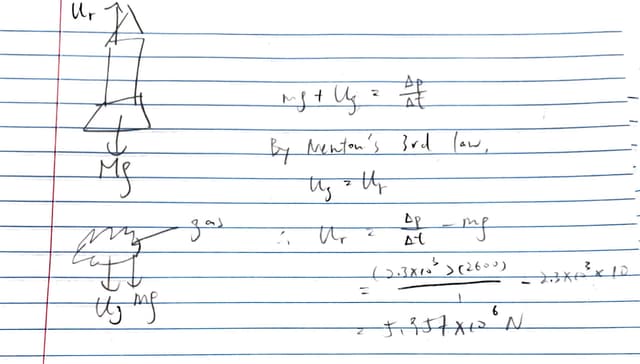 Ur
Mg
gas
Ug mg
mg + Ug = Δp/Δt
By Newton's 3rd law,
Ug = Ur
∴ Ur = Δp/Δt - mg
= (2.3×10³)(2600)/1 - 2.3×10³×10
= 5.957×10⁶ N